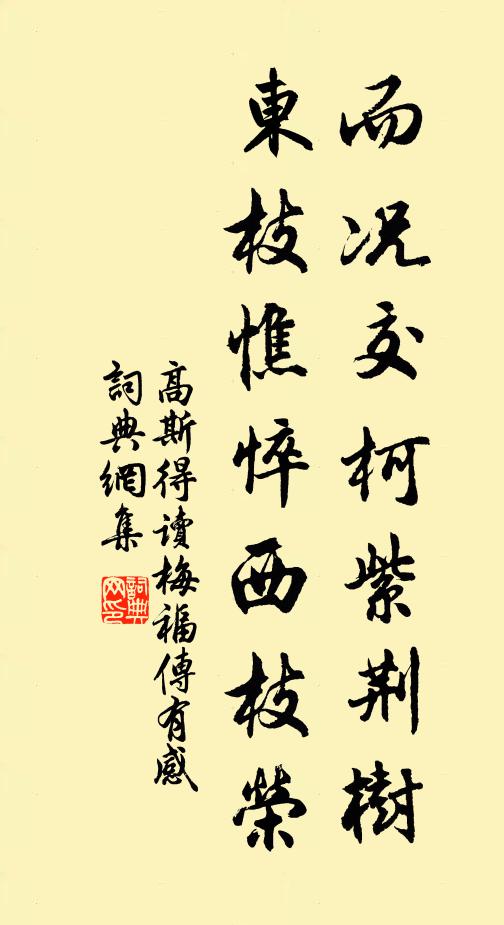 而况交柯紫荆樹
東枝憔悴西枝榮
高斯得读梅福傳有感
詞典網集
詞典网印